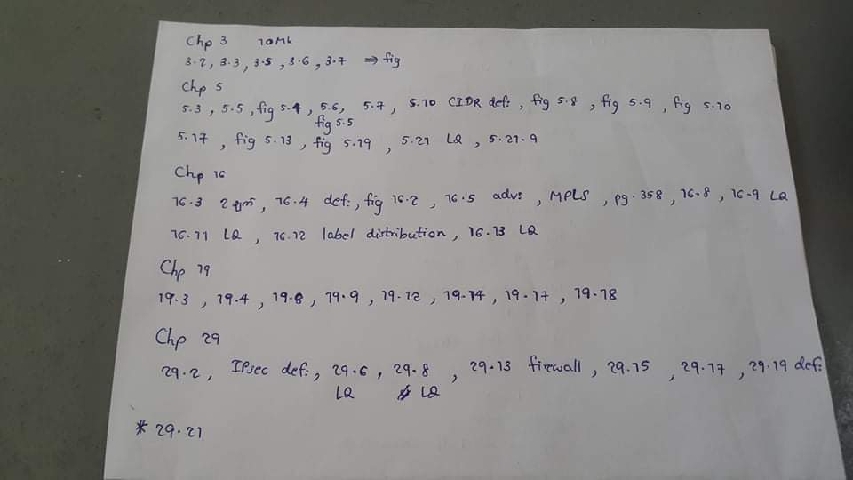 Chp 3 10Mb
3.2, 3.3, 3.5, 3.6, 3.7 ⇒ fig
Chp 5
5.3, 5.5, fig 5.4, 5.6, 5.7, 5.10 CIDR def:, fig 5.8, fig 5.9, fig 5.10
fig 5.5
5.17, fig 5.13, fig 5.19, 5.21 LQ, 5.21.9
Chp 16
16.3 2, 16.4 def:, fig 16.2, 16.5 adv:, MPLS, pg. 358, 16.8, 16.9 LQ
16.11 LQ, 16.12 label distribution, 16.13 LQ
Chp 19
19.3, 19.4, 19.8, 19.9, 19.12, 19.14, 19.17, 19.18
Chp 29
29.2, IPsec def:, 29.6, 29.8, 29.13 firewall, 29.15, 29.17, 29.19 def:
LQ LQ
* 29.21